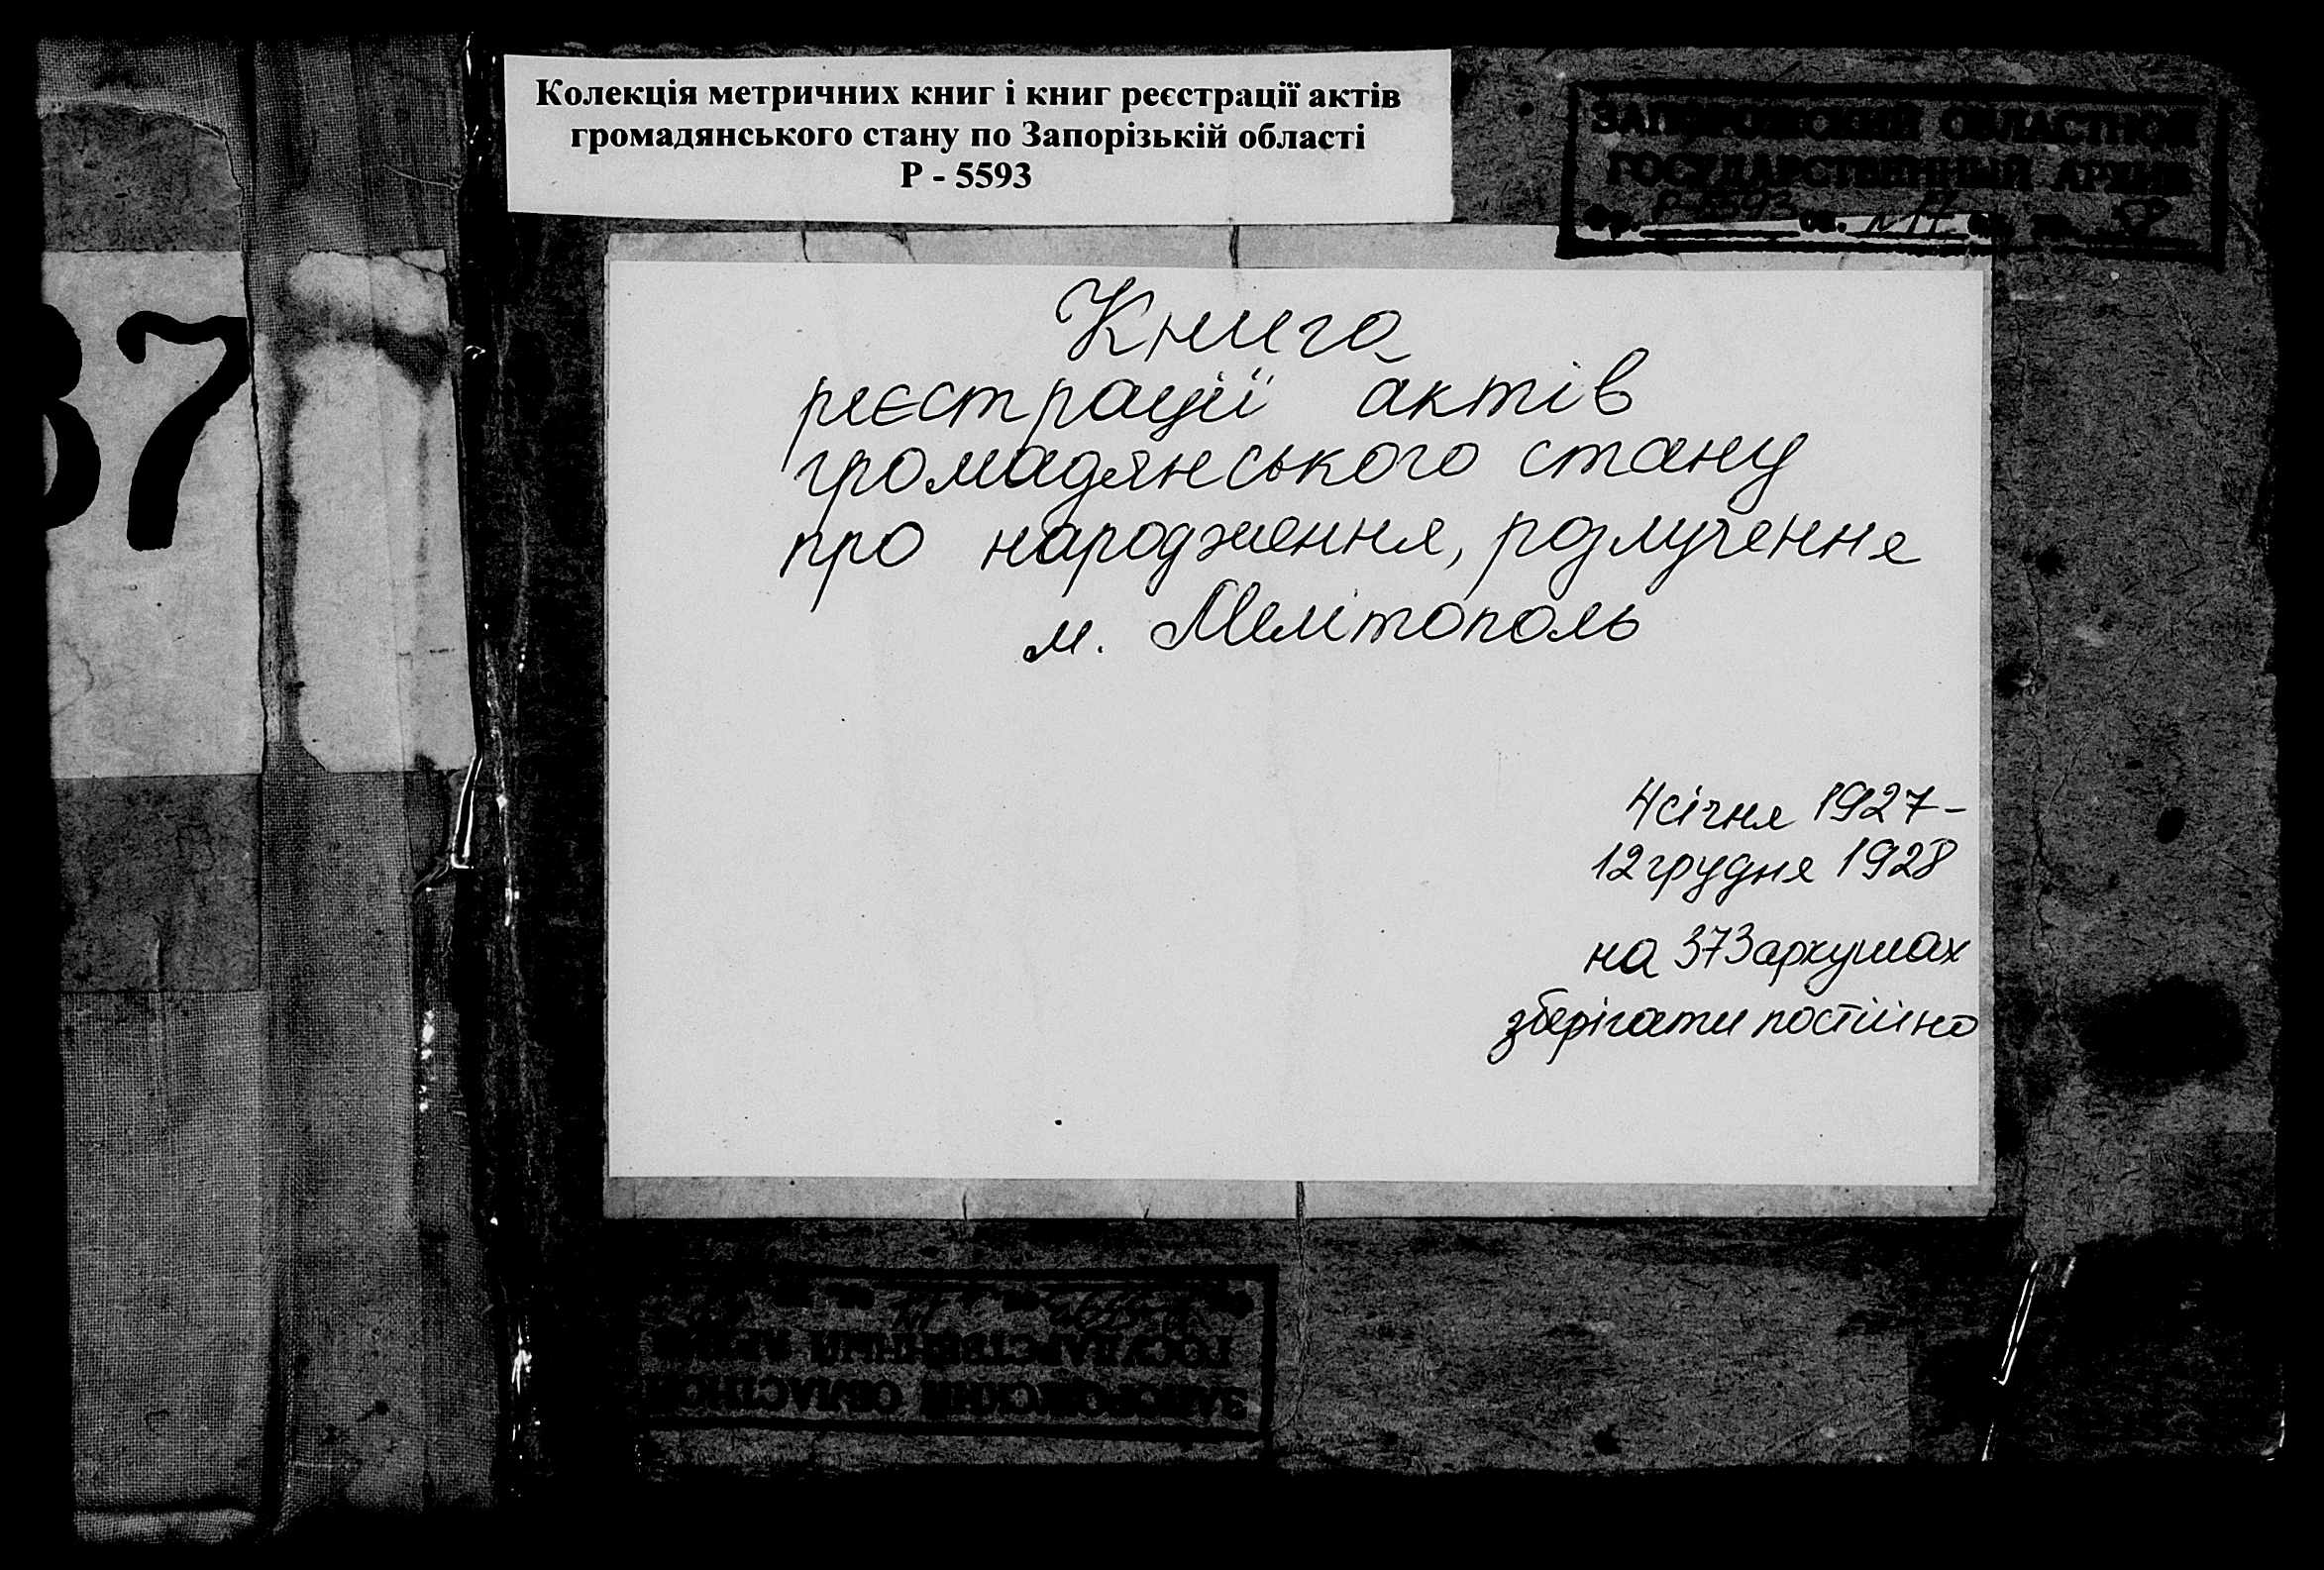 Колекція метричних книг і книг реєстрації актів
громадянського стану по Запорізькій області
Р - 5593
ЗАПОРОЖСКИЙ ОБЛАСТНОЙ
ГОСУДАРСТВЕННЫЙ АРХИВ
Фр. Р-5593 оп. №17
37
Книга
реєстрації актів
громадянського стану
про народження, розлучення
м. Мелітополь
4 січня 1927 -
12 грудня 1928
на 373 аркушах
зберігати постійно
ГОСУДАРСТВЕННЫЙ АРХИВ
ЗАПОРОЖСКИЙ ОБЛАСТНОЙ